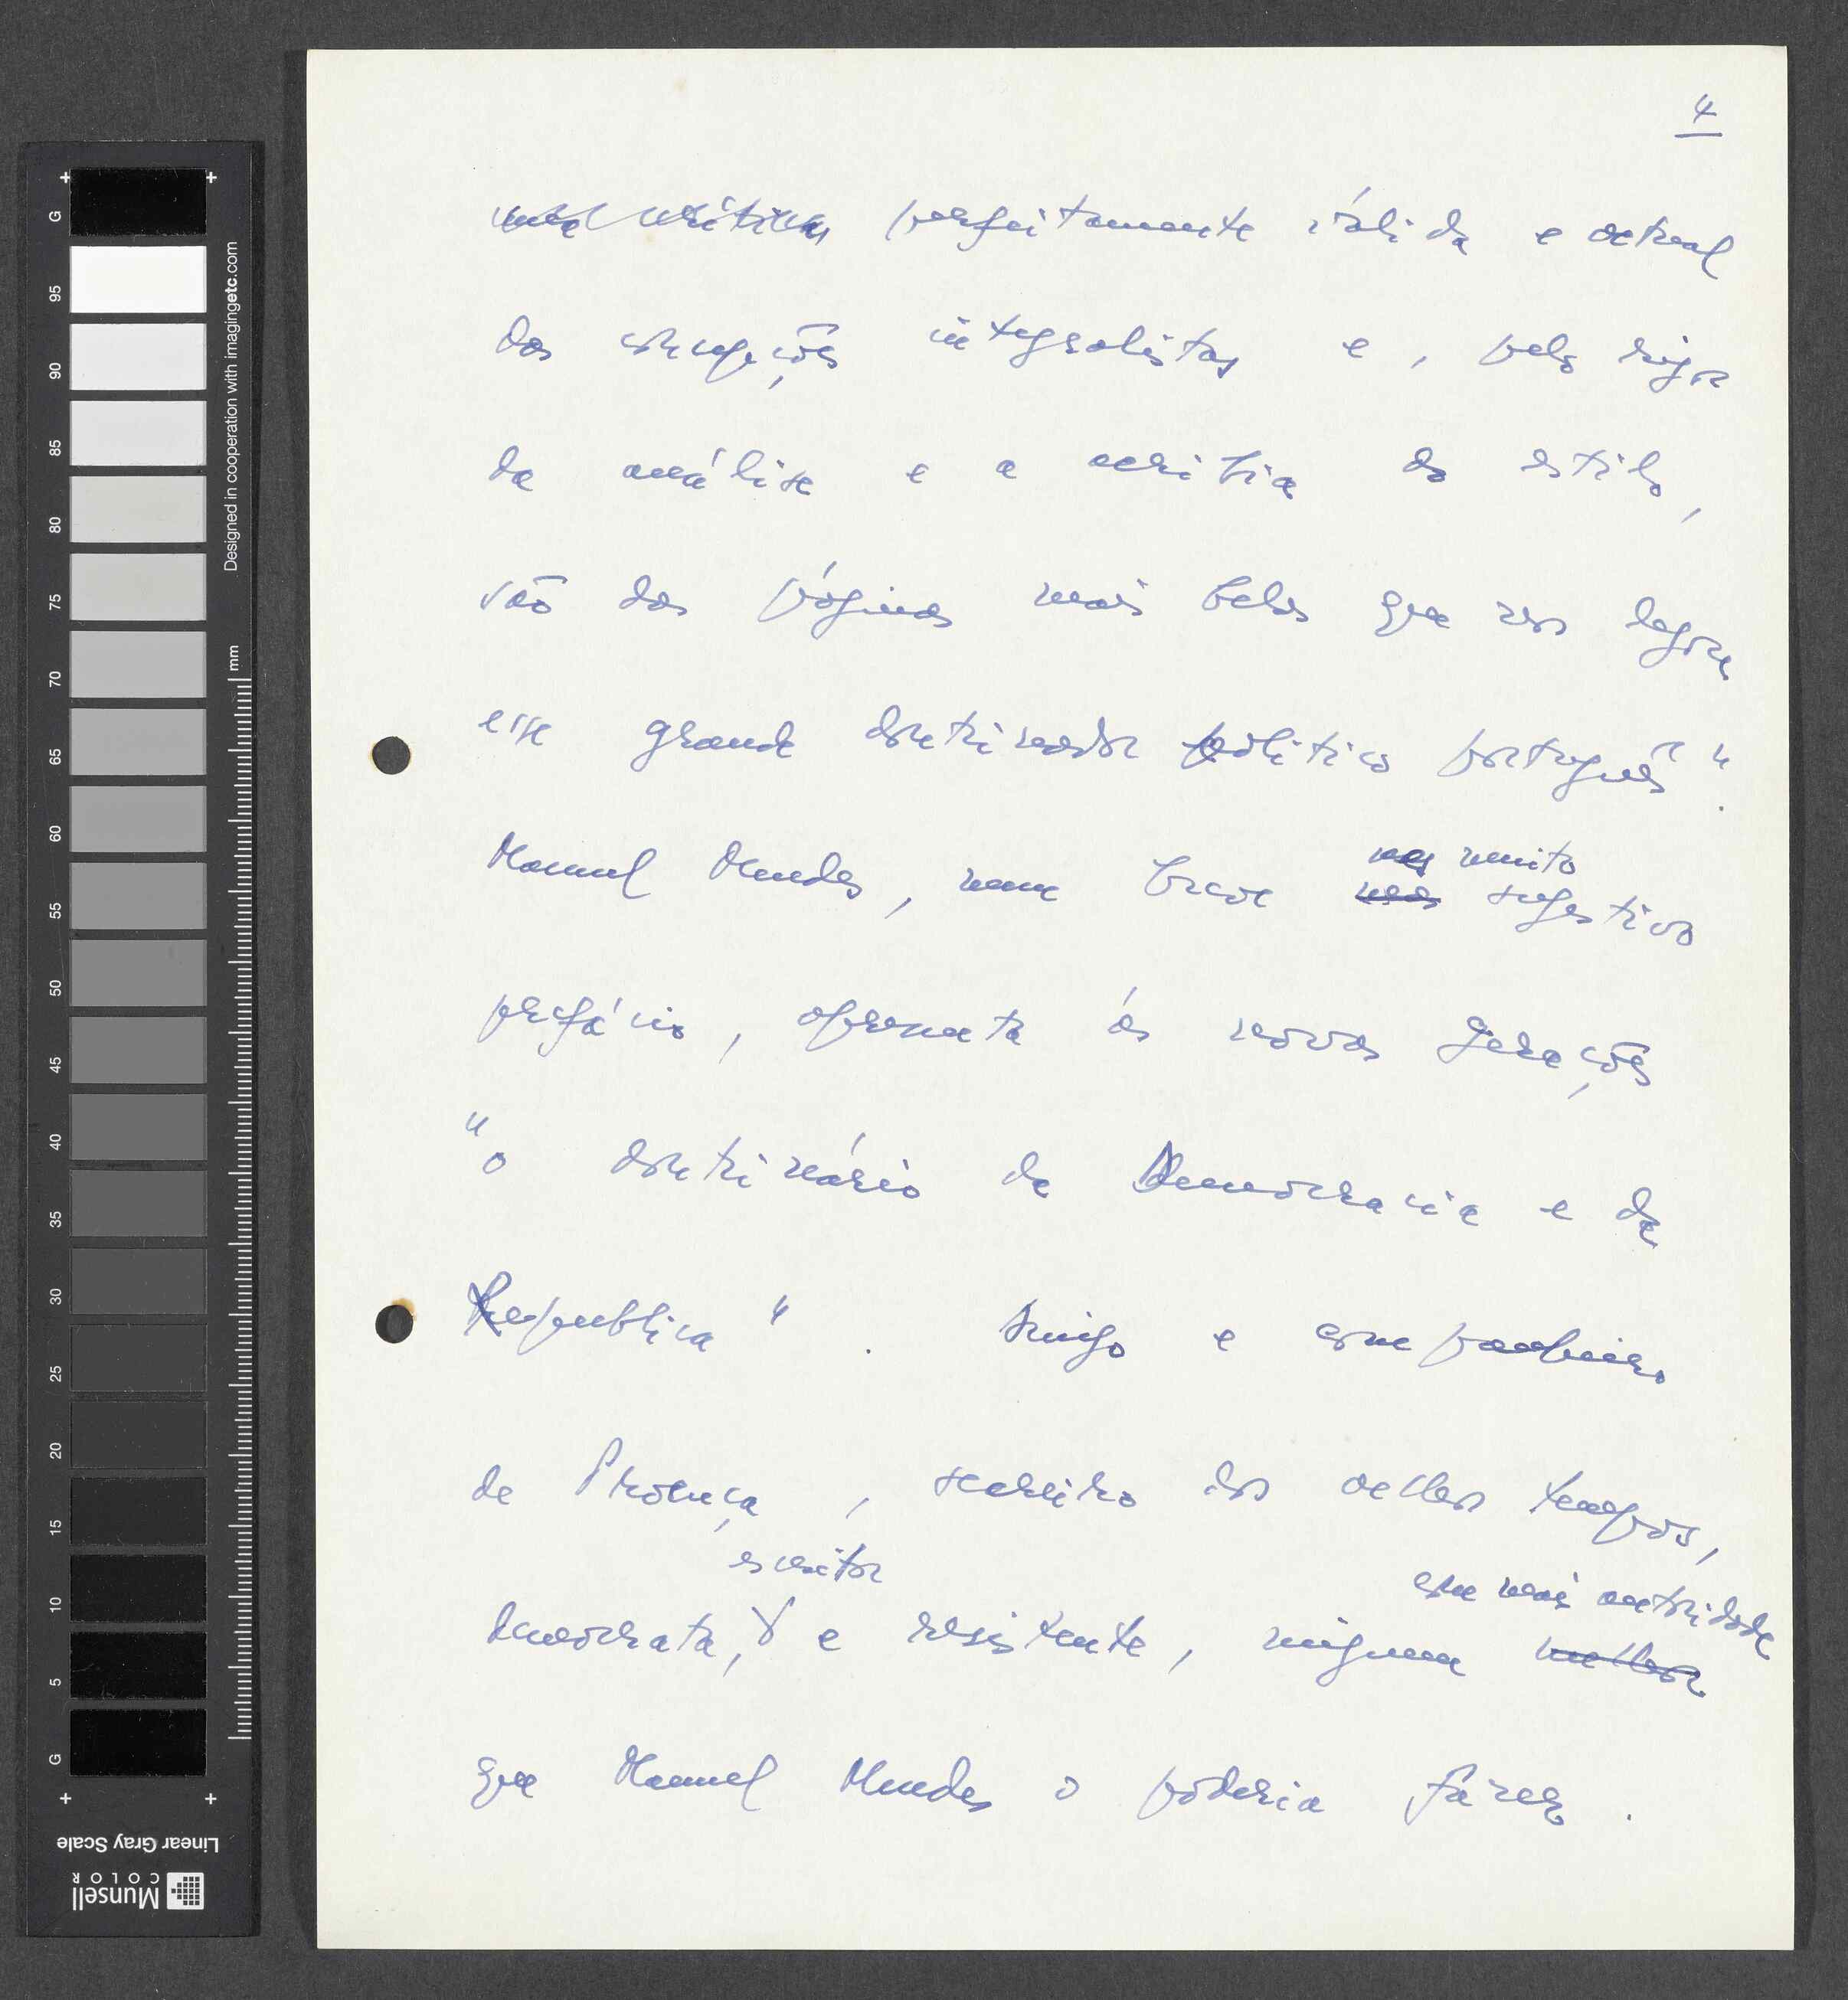 4
uma crítica perfeitamente válida e actual
das concepções integralistas e, pelo rigor
da análise e a acribia do estilo,
são das páginas mais belas que nos legou
esse grande doutrinador político português".
Manuel Mendes, num breve mas muito sugestivo
prefácio, apresenta às novas gerações
"o doutrinário da Democracia e da
República". Amigo e companheiro
de Proença, seareiro dos velhos tempos,
democrata, escritor e resistente, ninguem melhor com mais autoridade
que Manuel Mendes o poderia fazer.
G
95
90
85
80
75
70
65
60
55
50
45
40
35
30
25
20
15
10
5
G
Designed in cooperation with imagingetc.com
mm
Linear Gray Scale
Munsell
COLOR